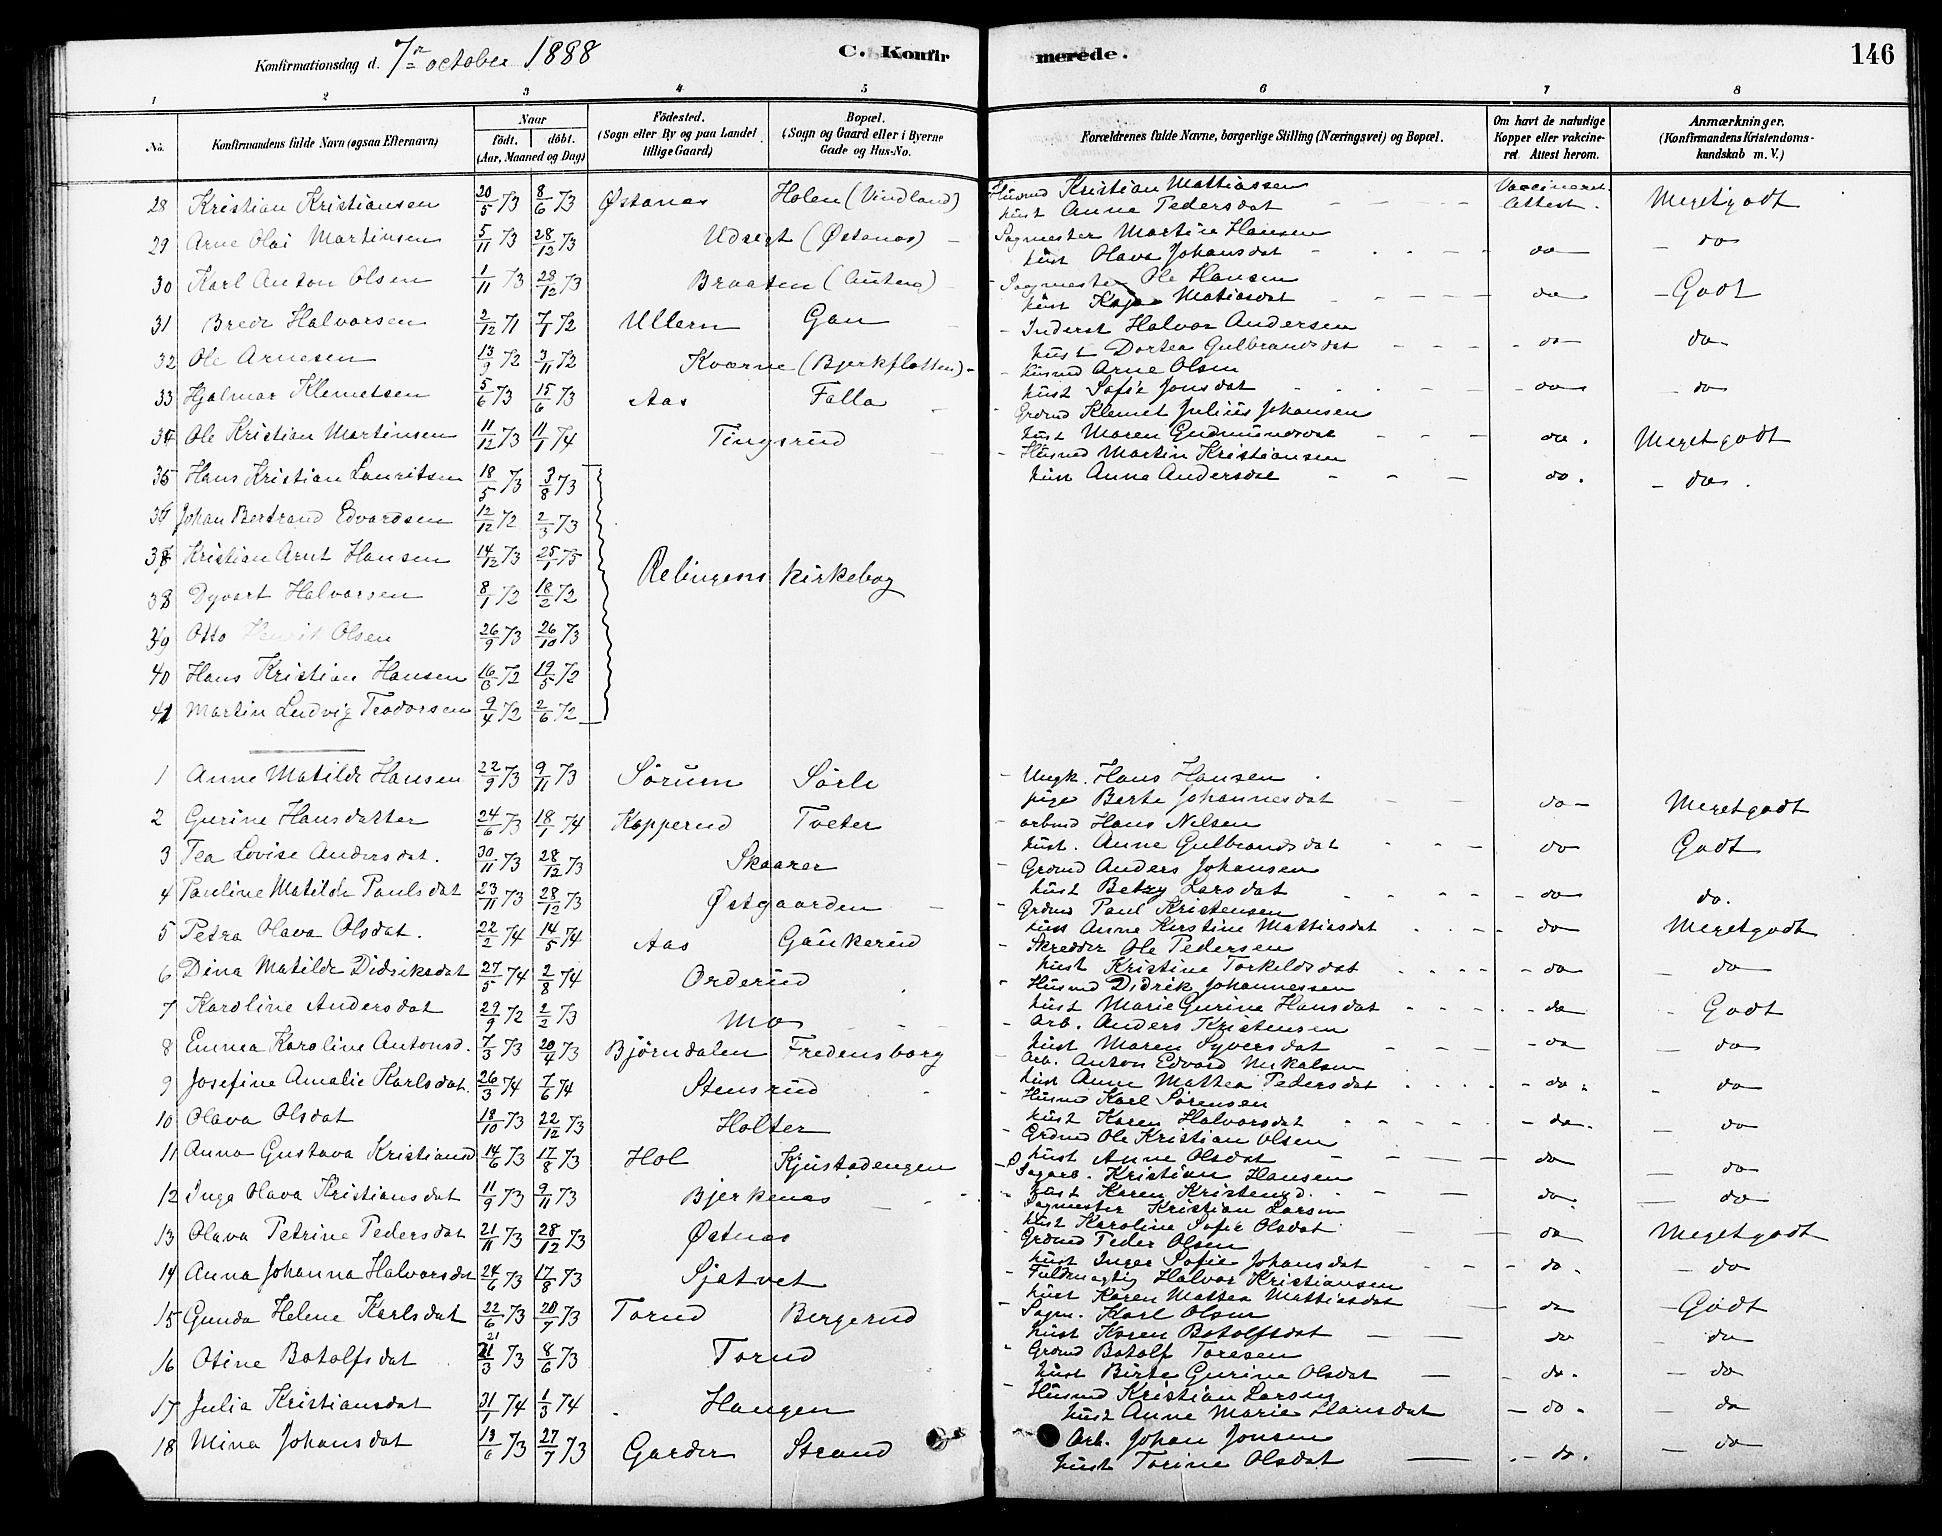 Konfirmationsdag d. 7de october 1888 C. Konfirmerede. 146
1 2 3 4 5 6 7 8
No. Konfirmandens fulde Navn (ogsaa Efternavn) Naar født. døbt. (Aar, Maaned og Dag) Fødested. (Sogn eller By og paa Landet tillige Gaard) Bopæl. (Sogn og Gaard eller i Byerne Gade og Hus-No. Forældrenes fulde Navne, borgerlige Stilling (Næringsvei) og Bopæl. Om havt de naturlige Kopper eller vakcineret. Attest herom. Anmærkninger. (Konfirmandens Kristendomskundskab m. V.)
28 Kristian Kristiansen 20/5 73 8/6 73 Østanas Holen (Vindland) Husmd Kristian Mattiassen hust Anne Pedersdat Vaccineret. Attest. Megetgodt
29 Arne Olai Martinsen 5/11 73 28/12 73 Udsigt (Østanas) Sagmester Martin Hansen hust Olava Johansdat do do
30 Karl Anton Olsen 1/11 73 28/12 73 Braaten (Autena) Sagmester Ole Hansen hust Kaja Matiasdat do Godt
31 Brede Halvorsen 2/12 71 7/1 72 Ullern Gan Inderst Halvor Andersen hust Dortea Gulbrandsdat do do
32 Ole Arnesen 13/9 72 3/11 72 Kværne (Bjerkflotten) Husmd Arne Olsen hust Sofie Jonsdat do do
33 Hjalmar Klemetsen 5/6 73 15/6 73 Aas Falla Grdmd Klemet Julius Johansen hust Maren Gudmundsdat do Megetgodt
34 Ole Kristian Martinsen 11/12 73 11/1 74 Tingsrud Husmd Martin Kristiansen hust Anne Andersdat do. do.
35 Hans Kristian Lauritsen 18/5 73 3/8 73
36 Johan Bertrand Edvardsen 12/12 72 2/3 73
37 Kristian Arnt Hansen 14/12 73 25/1 75
38 Dyvart Halvorsen 8/1 72 18/2 72
Relingens kirkebog
39 Otto Henrik Olsen 26/9 73 26/10 73
40 Hans Kristian Hansen 16/3 72 19/5 72
41 Martin Ludvig Teodorsen 9/4 72 2/6 72
1 Anne Matilde Hansen 22/9 73 9/11 73 Sørum Sørli Ungk. Hans Hansen pige Berte Johannesdat do Megetgodt
2 Gurine Hansdatter 24/6 73 18/1 74 Kopperud Tveter arbmd Hans Nilsen hust. Anne Gulbrandsdat do Godt
3 Tea Lovise Andersdat. 30/11 73 28/12 73 Skaarer Grdmd Anders Johansen hust Betzy Larsdat do do.
4 Pauline Matilde Paulsdat 23/11 73 28/12 73 Østgaarden Grdmd Paul Kristensen hust Anne Kirstine Mattiasdat do Megetgodt
5 Petra Olava Olsdat. 22/2 74 14/5 74 Aas Gaukerud Skredder Ole Pedersen hust Kristine Torkildsdat do do
6 Dina Matilde Didriksdat 27/5 74 2/8 74 Orderud Husmd Didrik Johannessen hust Marie Gurine Hansdat do Godt
7 Karoline Andersdat 29/9 72 2/2 73 Mo Arb. Anders Kristensen hust Maren Syversdat do do
8 Emma Karoline Antonsd. 7/3 73 20/4 73 Bjørndalen Fredensborg Arb. Anton Edvard Mikalsen hust Anne Mattea Pedersdat do. do
9 Josefine Amalie Karlsdat 26/3 74 7/6 74 Stensrud Husmd Karl Sørensen hust Karen Halvorsdat do. do
10 Olava Olsdat 18/10 73 22/12 73 Holter Grdmd Ole Kristian Olsen hust Anne Olsdat do do
11 Anna Gustava Kristiansd 14/6 73 17/8 73 Hol Kjustadengen Sagarb. Kristian Hansen hust Karen Kristensd. do. do
12 Inga Olava Kristiansdat 11/9 73 9/11 73 Bjerkenas Sagmester Kristian Larsen hust Karoline Sofie Olsdat do Megetgodt
13 Olava Petrine Pedersdat 21/11 73 28/12 73 Østnas Grdmd Peder Olsen hust Inger Sofie Johansdat do. do
14 Anna Johanna Halvorsdat 24/6 73 17/8 73 Sjatvet Fuldmægtig Halvor Kristiansen hust Karen Mattea Mattiasdat do Godt
15 Gunda Helene Karlsdat 22/6 73 20/7 73 Torud Bergerud Sagm. Karl Olsen hust Karen Botolfsdat do do
16 Otine Botolfsdat 21/3 73 8/6 73 Torud Grdmd Botolf Toresen hust Birte Gurine Olsdat do. do
17 Julia Kristiansdat 31/1 74 1/3 74 Haugen Husmd Kristian Larsen hust Anne Marie Hansdat do. do
18 Mina Johansdat 13/6 73 27/7 73 Garder Strand Arb. Johan Jonsen hust Torine Olsdat do. do